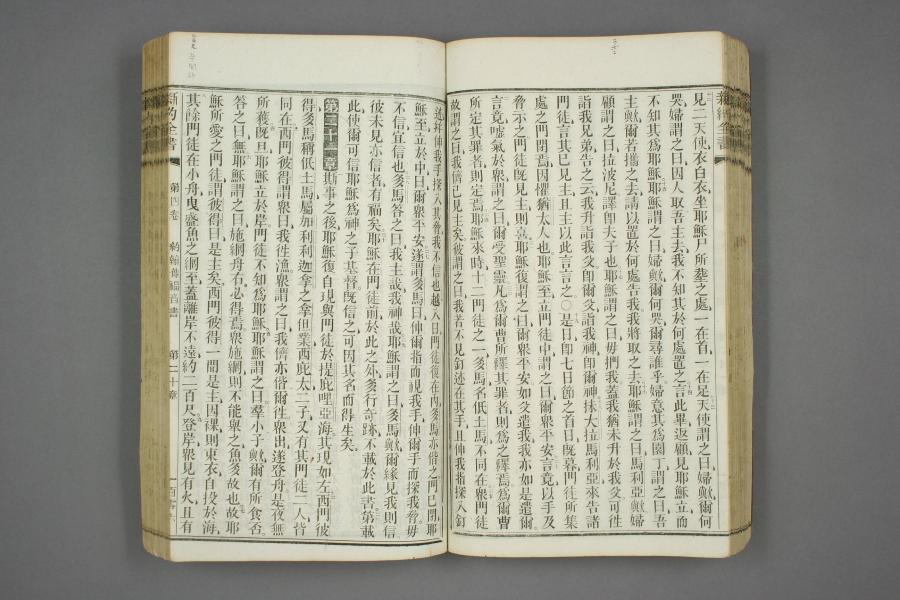 見二天使衣白衣坐耶穌尸所葬之處一在首一在足天使謂之曰婦歟爾何
哭婦謂之曰因人取吾主去我不知其於何處置之言此畢返顧見耶穌立而
不知其爲耶穌耶穌謂之曰婦歟爾何哭爾尋誰乎婦意其爲園丁謂之曰吾
主歟爾若攜之去請以置於何處告我我將取之去耶穌謂之曰馬利亞歟婦
顧謂之曰拉波尼譯卽夫子也耶穌謂之曰毋捫我蓋我猶未升於我父可徃
詣我兄弟告之云我升詣我父卽爾父詣我神卽爾神抹大拉馬利亞來告諸
門徒言其已見主且主以此言言之〇是日卽七日節之首日旣暮門徒所集
處之門閉焉因懼猶太人也耶穌至立門徒中謂之曰爾衆平安言竟以手及
脅示之門徒旣見主則喜耶穌復謂之曰爾衆平安如父遣我我亦如是遣爾
言竟噓氣於衆謂之曰爾受聖靈凡爲爾曹所釋其罪者則爲之釋焉爲爾曹
所定其罪者則定焉耶穌來時十二門徒之一多馬名低土馬不同在衆門徒
故謂之曰我儕已見主矣彼謂之曰我若不見釘迹在其手且伸我指探入釘
迹幷伸我手探入其脅我不信也越八日門徒復在內多馬亦偕之門已閉耶
穌至立於中曰爾衆平安遂謂多馬曰伸爾指而視我手伸爾手而探我脅毋
不信宜信也多馬答之曰我主哉我神哉耶穌謂之曰多馬歟爾緣見我則信
彼未見亦信者有福矣耶穌在門徒前於此之外多行奇跡不載於此書第載
此使爾可信耶穌爲神之子基督旣信之可因其名而得生矣
第二十一章斯事之後耶穌復自現與門徒於提庇哩亞海其現如左西門彼
得多馬稱低土馬屬加利利迦拿之拿但業西庇太二子又有其門徒二人皆
同在西門彼得謂衆曰我徃漁衆謂之曰我儕亦偕爾徃衆出遂登舟是夜無
所獲旣旦耶穌立於岸門徒不知爲耶穌耶穌謂之曰羣小子歟爾有所食否
答之曰無耶穌謂之曰施網舟右必得焉衆施網則不能舉之魚多故也故耶
穌所愛之門徒謂彼得曰是主矣西門彼得一聞是主因裸則束衣自投於海
其餘門徒在小舟曳盛魚之網至蓋離岸不遠約二百尺登岸衆見有火且有
新約全書 第四卷 約翰傳福音書 第二十章 一百零六
新約全書